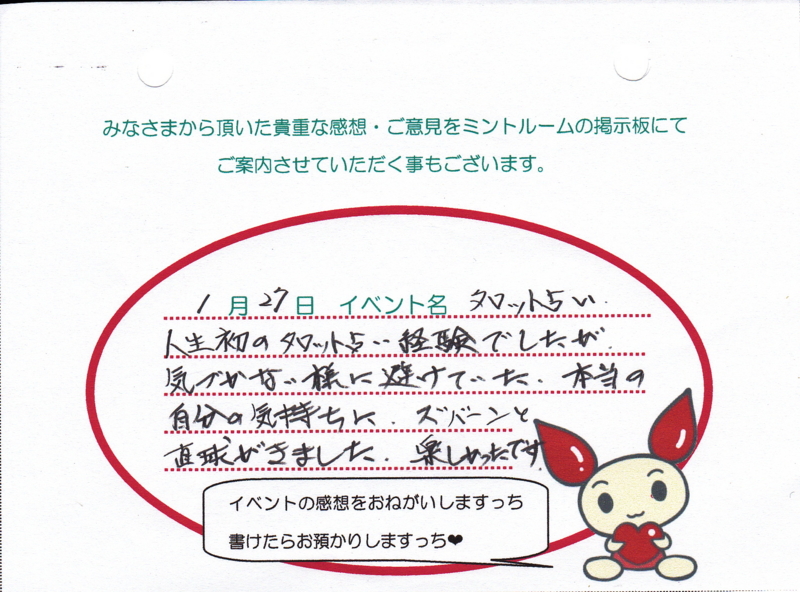 みなさまから頂いた貴重な感想・ご意見をミントルームの掲示板にて
ご案内させていただく事もございます。
1月27日 イベント名 タロット占い.
人生初のタロット占い経験でしたが、
気づかない様に避けていた、本当の
自分の気持ちに、ズバーンと
直球がきました。楽しかったです。
イベントの感想をおねがいしますっち
書けたらお預かりしますっち❤